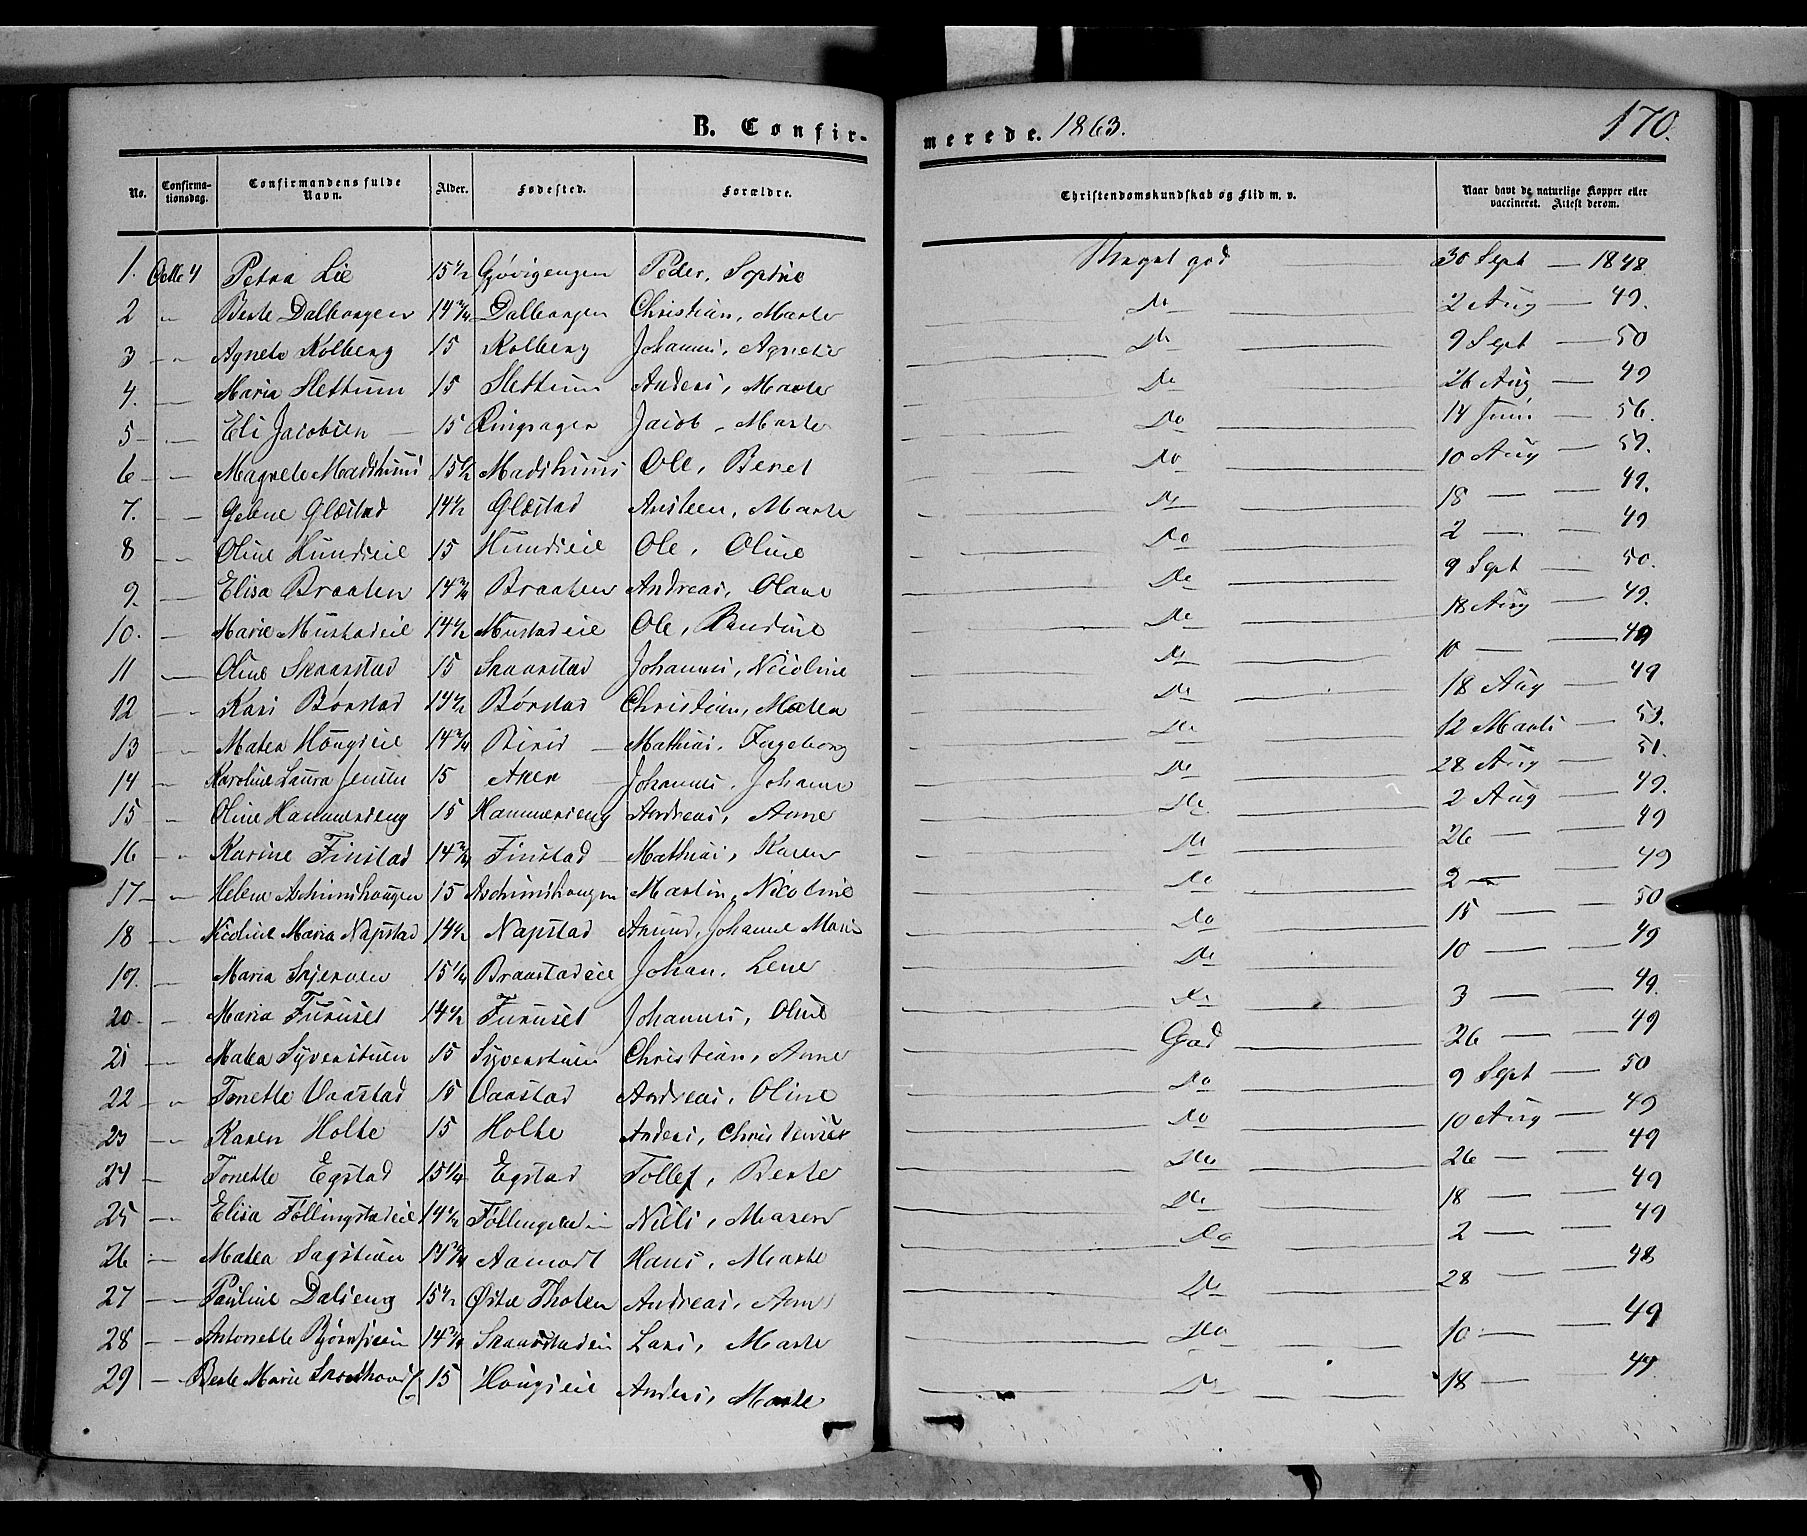 B. Confirmerede. 1863. 170.
No. Confirmationsdag. Confirmandens fulde Navn. Alder. Fødested. Forældre. Christendomskundskab og Flid m. v. Naar havt de naturlige Kopper eller vaccineret. Attest derom.
1. Octbr 4 Petra Lie 15 1/2 Gjøvigengen Peder, Sophie Meget god 30 Sept — 1848.
2 " Berte Dalborgen 14 3/4 Dalborgen Christian, Marte Do 2 Aug — 49.
3 — " Agnete Kolberg 15 Kolberg Johannes, Agnete Do 9 Sept — 50
4. — Maria Slettum 15 Slettum Anders, Marte Do 26 Aug — 49
5 — — Eli Jacobsen — 15 Ringsager Jacob, Marte Do 14 Juni — 56.
6 — — Magnete Madshuus 15 1/2 Madshuus Ole, Beret Do 10 Aug —
7. — — Gelene Glæstad 14 1/2 Glæstad Ansteen, Marte Do 18 — — 49.
8 — Oline Hundseie 15 Hundseie Ole, Oline Do 2 — — 49
9. — Elisa Braaten 14 3/4 Braaten Andreas, Olave Do 9 Sept — 50.
10. — Marie Mustadeie 14 1/2 Mustadeie Ole, Randine Do 18 Aug — 49.
11 — Oline Skaarstad 15 Skaarstad Johannes, Nicoline Do 10 — — 49
12 — " Kari Børstad 14 1/2 Børstad Christian, Matea Do 18 Aug — 49
13 — " Matea Hougseie 14 3/4 Birid — Mathias, Ingeborg Do 12 Marts — 53.
14 — Karoline Laura Jensen 15 Aker — Johannes, Johanne Do 28 Aug — 51.
15 — Oline Hammerseng 15 Hammerseng Andreas, Anne Do 2 Aug — 49.
16 — " Karine Finstad 14 3/4 Finstad — Mathias, Karen Do 26 — — 49
17 — " Helene Aschimshougen 15 Aschimshougen Martin, Nicoline Do 2 — — 49
18 — " Nicoline Maria Napstad 14 1/2 Napstad Amund, Johanne Marie Do 15 — — 50
19. — Maria Skjerven 15 1/4 Braastadeie Johan, Lene Do 10 — — 49
20 — — Maria Furuset 14 1/2 Furuset Johannes, Oline Do 3 — — 49.
21 — " Matea Syverstuen 15 Syverstuen Christian, Anne God 26 — — 49
22 — " Tonette Vaastad 15 Vaastad Andreas, Oline Do 9 Sept — 50
23 — " Karen Holte 15 Holte Anders, Christense Do 10 Aug — 49
24 — Tonette Egstad 15 1/4 Egstad Tollef, Berte Do 26 — — 49
25 — " Elisa Føllingstadeie 14 1/2 Føllingstadeie Niels, Maren Do 18 — — 49
26 — Matea Sagstuen 14 3/4 Aamodt Hans, Marte Do 2 — — 49
27 — — Pauline Dalseng 15 1/2 Østre Thoten Andreas, Anne Do 28 — — 48
28 — — Antonette 14 3/4 Skaarstadeie Lars, Marte Do 10 — — 49
29 — Berte Marie 15 Hougseie Anders, Marte Do 18 — — 49